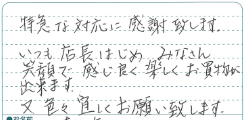 特急な対応に感謝致します。
いつも店長はじめ みなさん
笑顔で 感じ良く楽しくお買物が
出来ます。
又色々宜しくお願い致します。